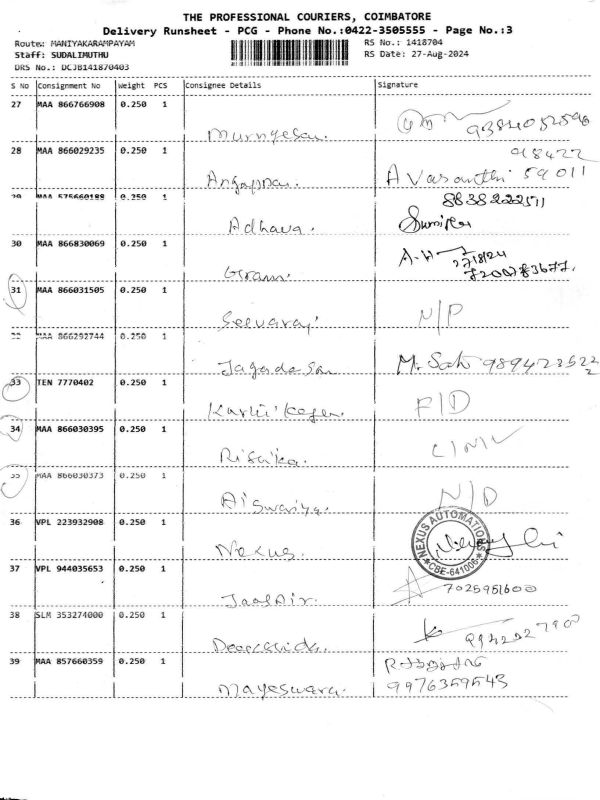 THE PROFESSIONAL COURIERS, COIMBATORE
Delivery Runsheet - PCG - Phone No.:0422-3505555 - Page No.:3
Route: MANIYAKARAMPAYAM
RS No.: 1418704
Staff: SUDALIMUTHU
RS Date: 27-Aug-2024
DRS No.: DCJB141870403
S No Consignment No Weight PCS Consignee Details Signature
27 MAA 866766908 0.250 1
Murugesan.
28 MAA 866029235 0.250 1
98422
Angappan. A Vasanthi 59011
29 MAA 575660188 0.250 1
8838222511
Adhava.
30 MAA 866830069 0.250 1
27/8/24
31 MAA 866031505 0.250 1
N/P
33 MAA 866292744 0.250 1
Jagadesan
33 TEN 7770402 0.250 1
F/D
34 MAA 866030395 0.250 1
Risika.
35 MAA 866030373 0.250 1
Aiswariya. N/D
36 VPL 223932908 0.250 1
NEXUS AUTOMATIONS
CBE-641006
Nexus.
37 VPL 944035653 0.250 1
7025951600
38 SLM 353274000 0.250 1
39 MAA 857660359 0.250 1
Mayeswara. 9976359543